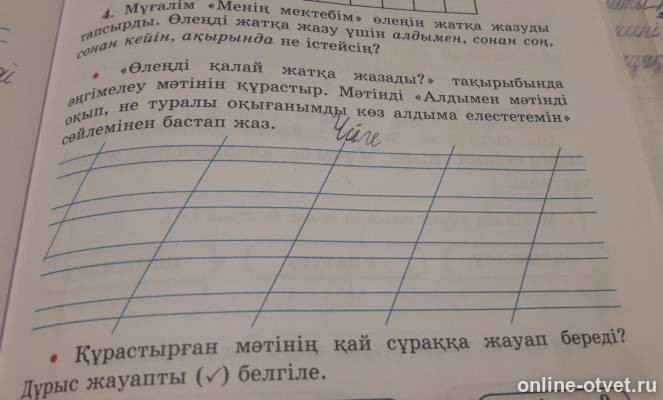 4. Мұғалім «Менің мектебім» өлеңін жатқа жазуды
тапсырды. Өлеңді жатқа жазу үшін алдымен, сонан соң,
сонан кейін, ақырында не істейсің?
• «Өлеңді қалай жатқа жазады?» тақырыбында
әңгімелеу мәтінін құрастыр. Мәтінді «Алдымен мәтінді
оқып, не туралы оқығанымды көз алдыма елестетемін»
сөйлемінен бастап жаз.
Үйге
• Құрастырған мәтінің қай сұраққа жауап береді?
Дұрыс жауапты (✓) белгіле.
online-otvet.ru